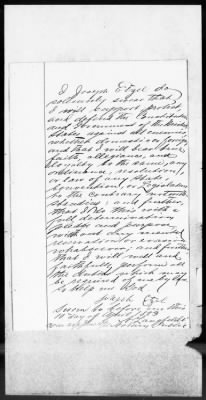 I Joseph Etzel do
solemnly swear that
I will support protect
and defend the Constitution
and Government of the United
States against all enemies
whether domestic or foreign
and that I will bear true
faith, allegiance, and
loyalty to the same, any
ordinance, resolution,
or law of any State
Convention, or Legislature
to the contrary
notwithstanding; and further
that I do this with a
full determination
pledge and purpose
without any mental
reservation or evasion
whatsoever, and further
that I will well and
faithfully perform all
the duties which may
be required of me by law
So help me God
Joseph Etzel
Sworn to before me this
10 day of
Notary Public